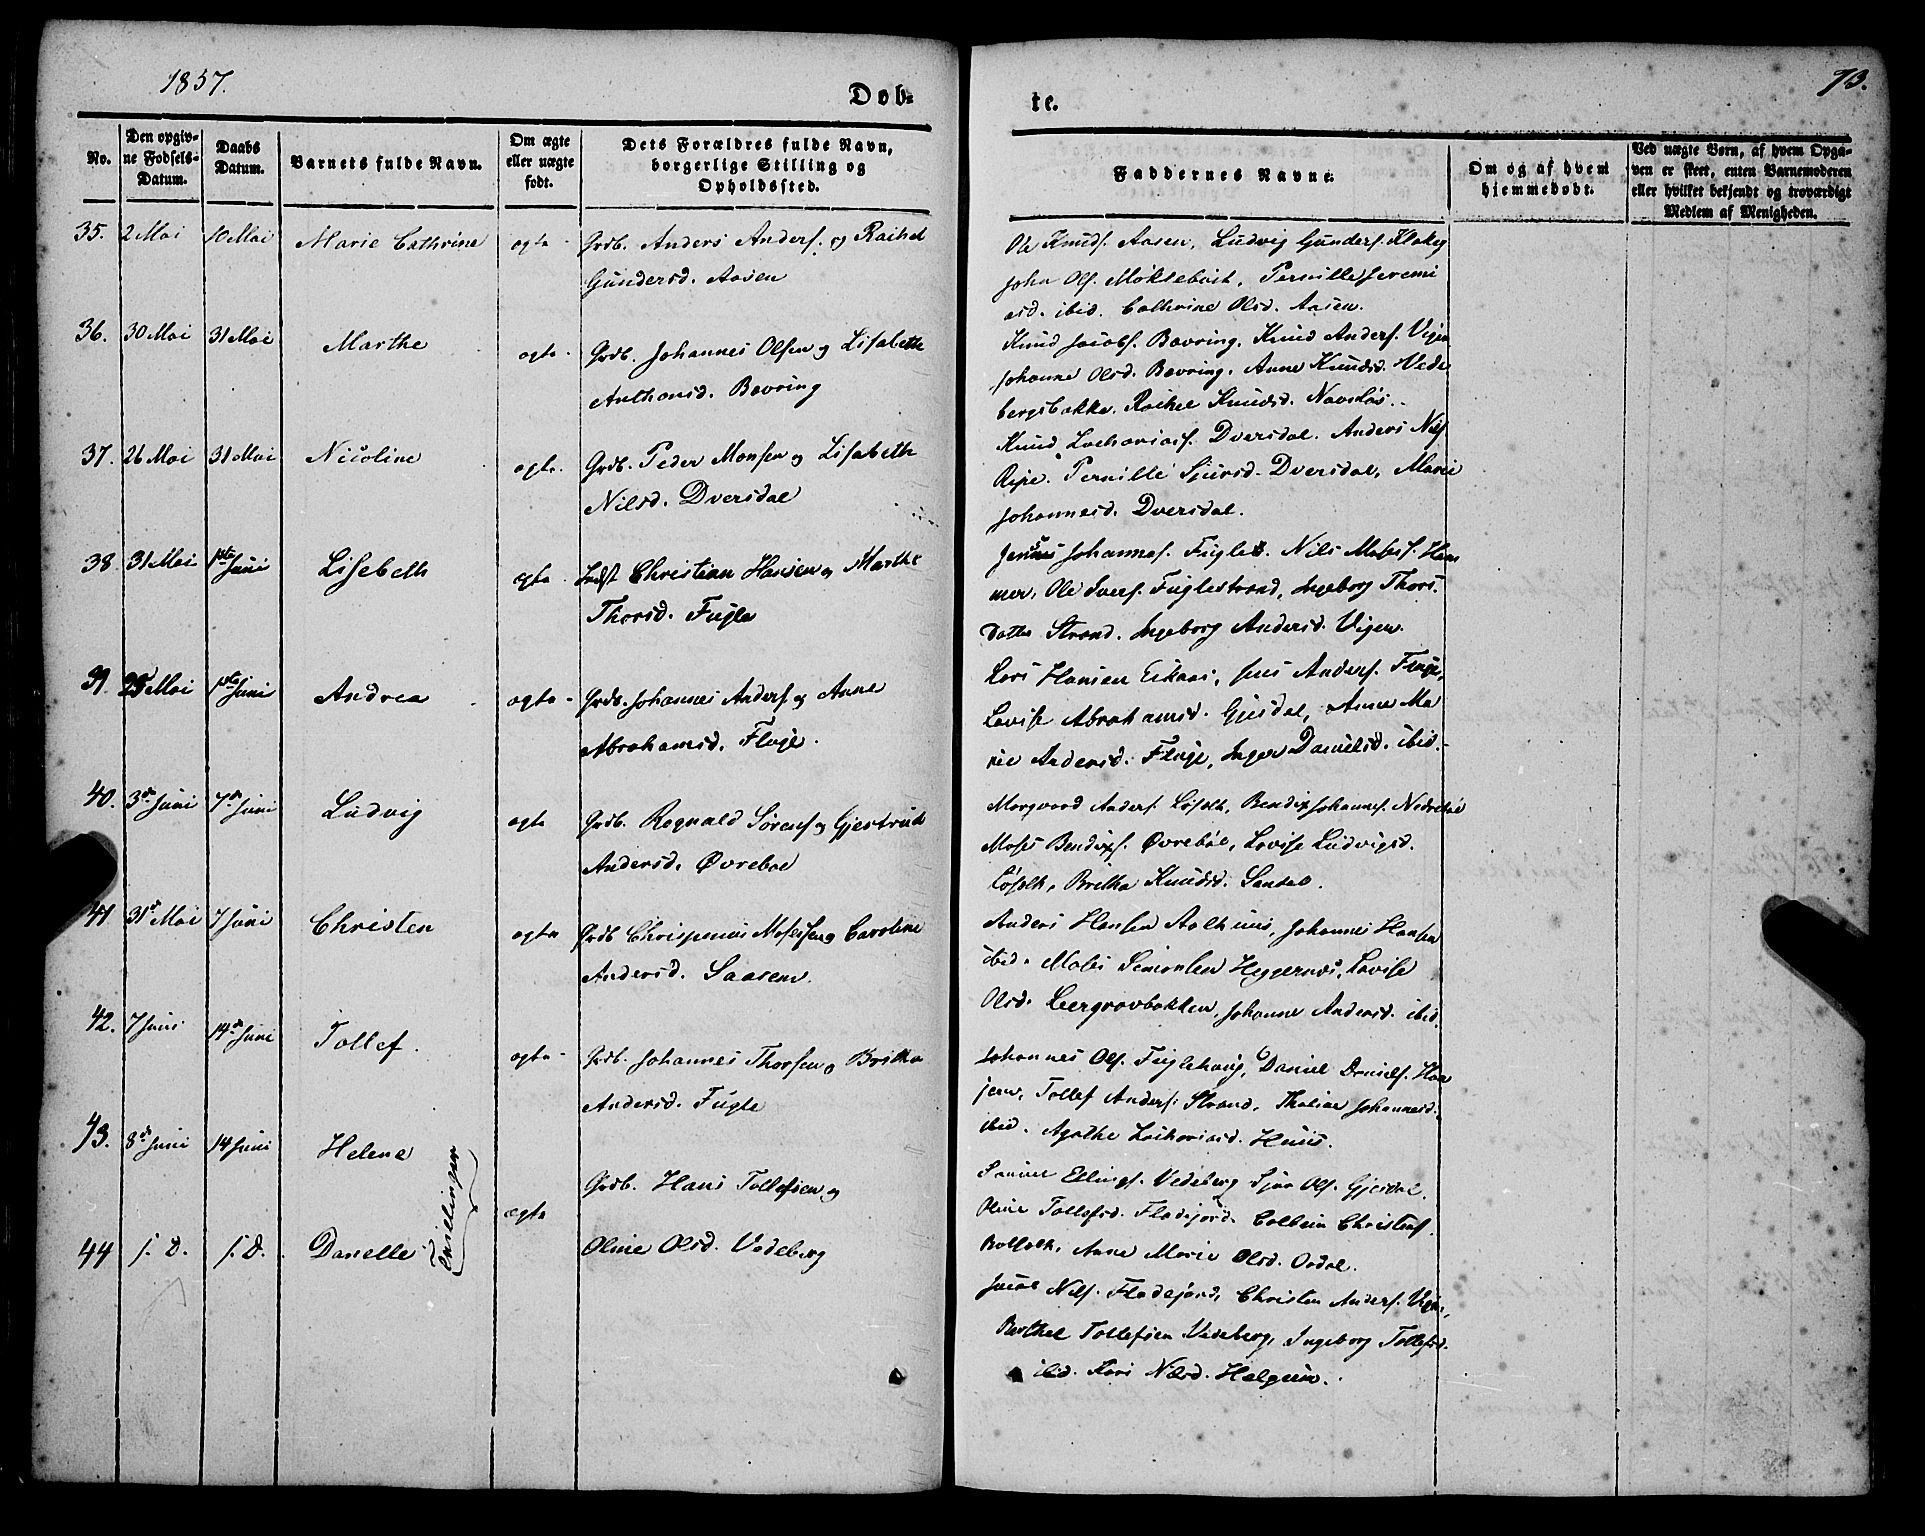 1857.
Døb-
te.
73.
No.
Den opgiv-
ne Fødsels-
Datum.
Daabs
Datum.
Barnets fulde Navn.
Om ægte
eller uægte
født.
Dets Forældres fulde Navn,
borgerlige Stilling og
Opholdssted.
Faddernes Navne.
Om og af hvem
hjemmedøbt.
Ved uægte Børn, af hvem Opga-
ven er skeet, enten Barnemoderen
eller hvilket bekjendt og troværdigt
Medlem af Menigheden.
35. 2 Mai 10 Mai Marie Cathrine ægte Grdb. Anders Anders. og Rachel
Gundersd. Aasen
Ole Knuds. Aasen, Ludvig Gunders. Klakeg
Johan Ols. Myklebust, Pernille Jeremi
asd. ibid. Cathrine Olsd. Aasen.
36. 30 Mai 31 Mai Marthe ægte Grdb. Johannes Olsen og Lisabeth
Anthonsd. Bovring
Knud Jacobs. Bovring, Knud Anders. Vigen
Johanne Olsd. Bovring, Anne Knudsd. Vede
bergsbakke, Rachel Knudsd. Navstøs.
37. 26 Mai 31 Mai Nicoline ægte Grdb. Peder Monsen og Lisabeth
Nilsd. Dversdal
Knud Zachariass. Dversdal, Anders Nils.
Ripe, Pernille Sjursd. Dversdal, Marie
Johannesd. Dversdal.
38. 31 Mai 1ste Juni Lisebeth ægte Indst Christian Hansen og Marthe
Thorsd. Fugle
Johannes. Fugle, Nils Moses. Ham
mer, Ole Ivers. Fuglestrand, Ingeborg Thors
datter Strand, Ingeborg Andersd. Vigen.
39. 25 Mai 1ste Juni Andrea ægte Grdb. Johannes Anders og Anne
Abrahamsd. Fluge.
Lars Hansen Eikaas, Jens Anders. Fluge,
Lovise Abrahamsd. Gjesdal, Anne Ma
rie Andersd. Fluge, Inger Danielsd. ibid.
40. 3de Juni 7de Juni Ludvig ægte Grdb. Rognald Sørens og Gjertrud
Andersd. Øvrebøe
Morgvard Anders. Løfolk, Bendix Johannes. Nedrebøe
Moses Bendixs. Øvrebøe, Lovise Ludvigsd.
Løfolk, Britha Knudsd. Sandal.
41 31te Mai 7 Juni Christen ægte Grdb Chrispenus Mosessen og Caroline
Andersd. Saasen.
Anders Hansen Aalhuus, Johannes Hansen
ibid. Moses Simonsen Heggernæs, Lovise
Olsd. Leergrovbakken, Johanne Andersd. ibid.
42. 7 Juni 14de Juni Tollef. ægte Grdb. Johannes Thorsen og Britha
Andersd. Fugle
Johannes Ols. Fuglehaug, Daniel Daniels. Haa
jem, Tollef Anders. Strand, Thaline Johannesd.
ibid. Agathe Zachariasd. Huus.
43. 8de Juni 14 Juni Helene
Tvillinger
ægte
Grdb. Hans Tollefsen og
44 s. D. s. D. Danelle
Oline Olsd. Vedeberg
Ellings. Vedeberg, Sjur Ols. Gjesdal,
Oline Tollefsd. Fladefjord, Colbein Christens.
Botfolk, Anne Marie Olsd. Ordal.
Jacob Nils. Fladefjord, Christen Anders. Vigen,
Berthel Tollefsen Vedeberg, Ingeborg Tollefsd.
ibid. Kari Nilsd. Helgeim.